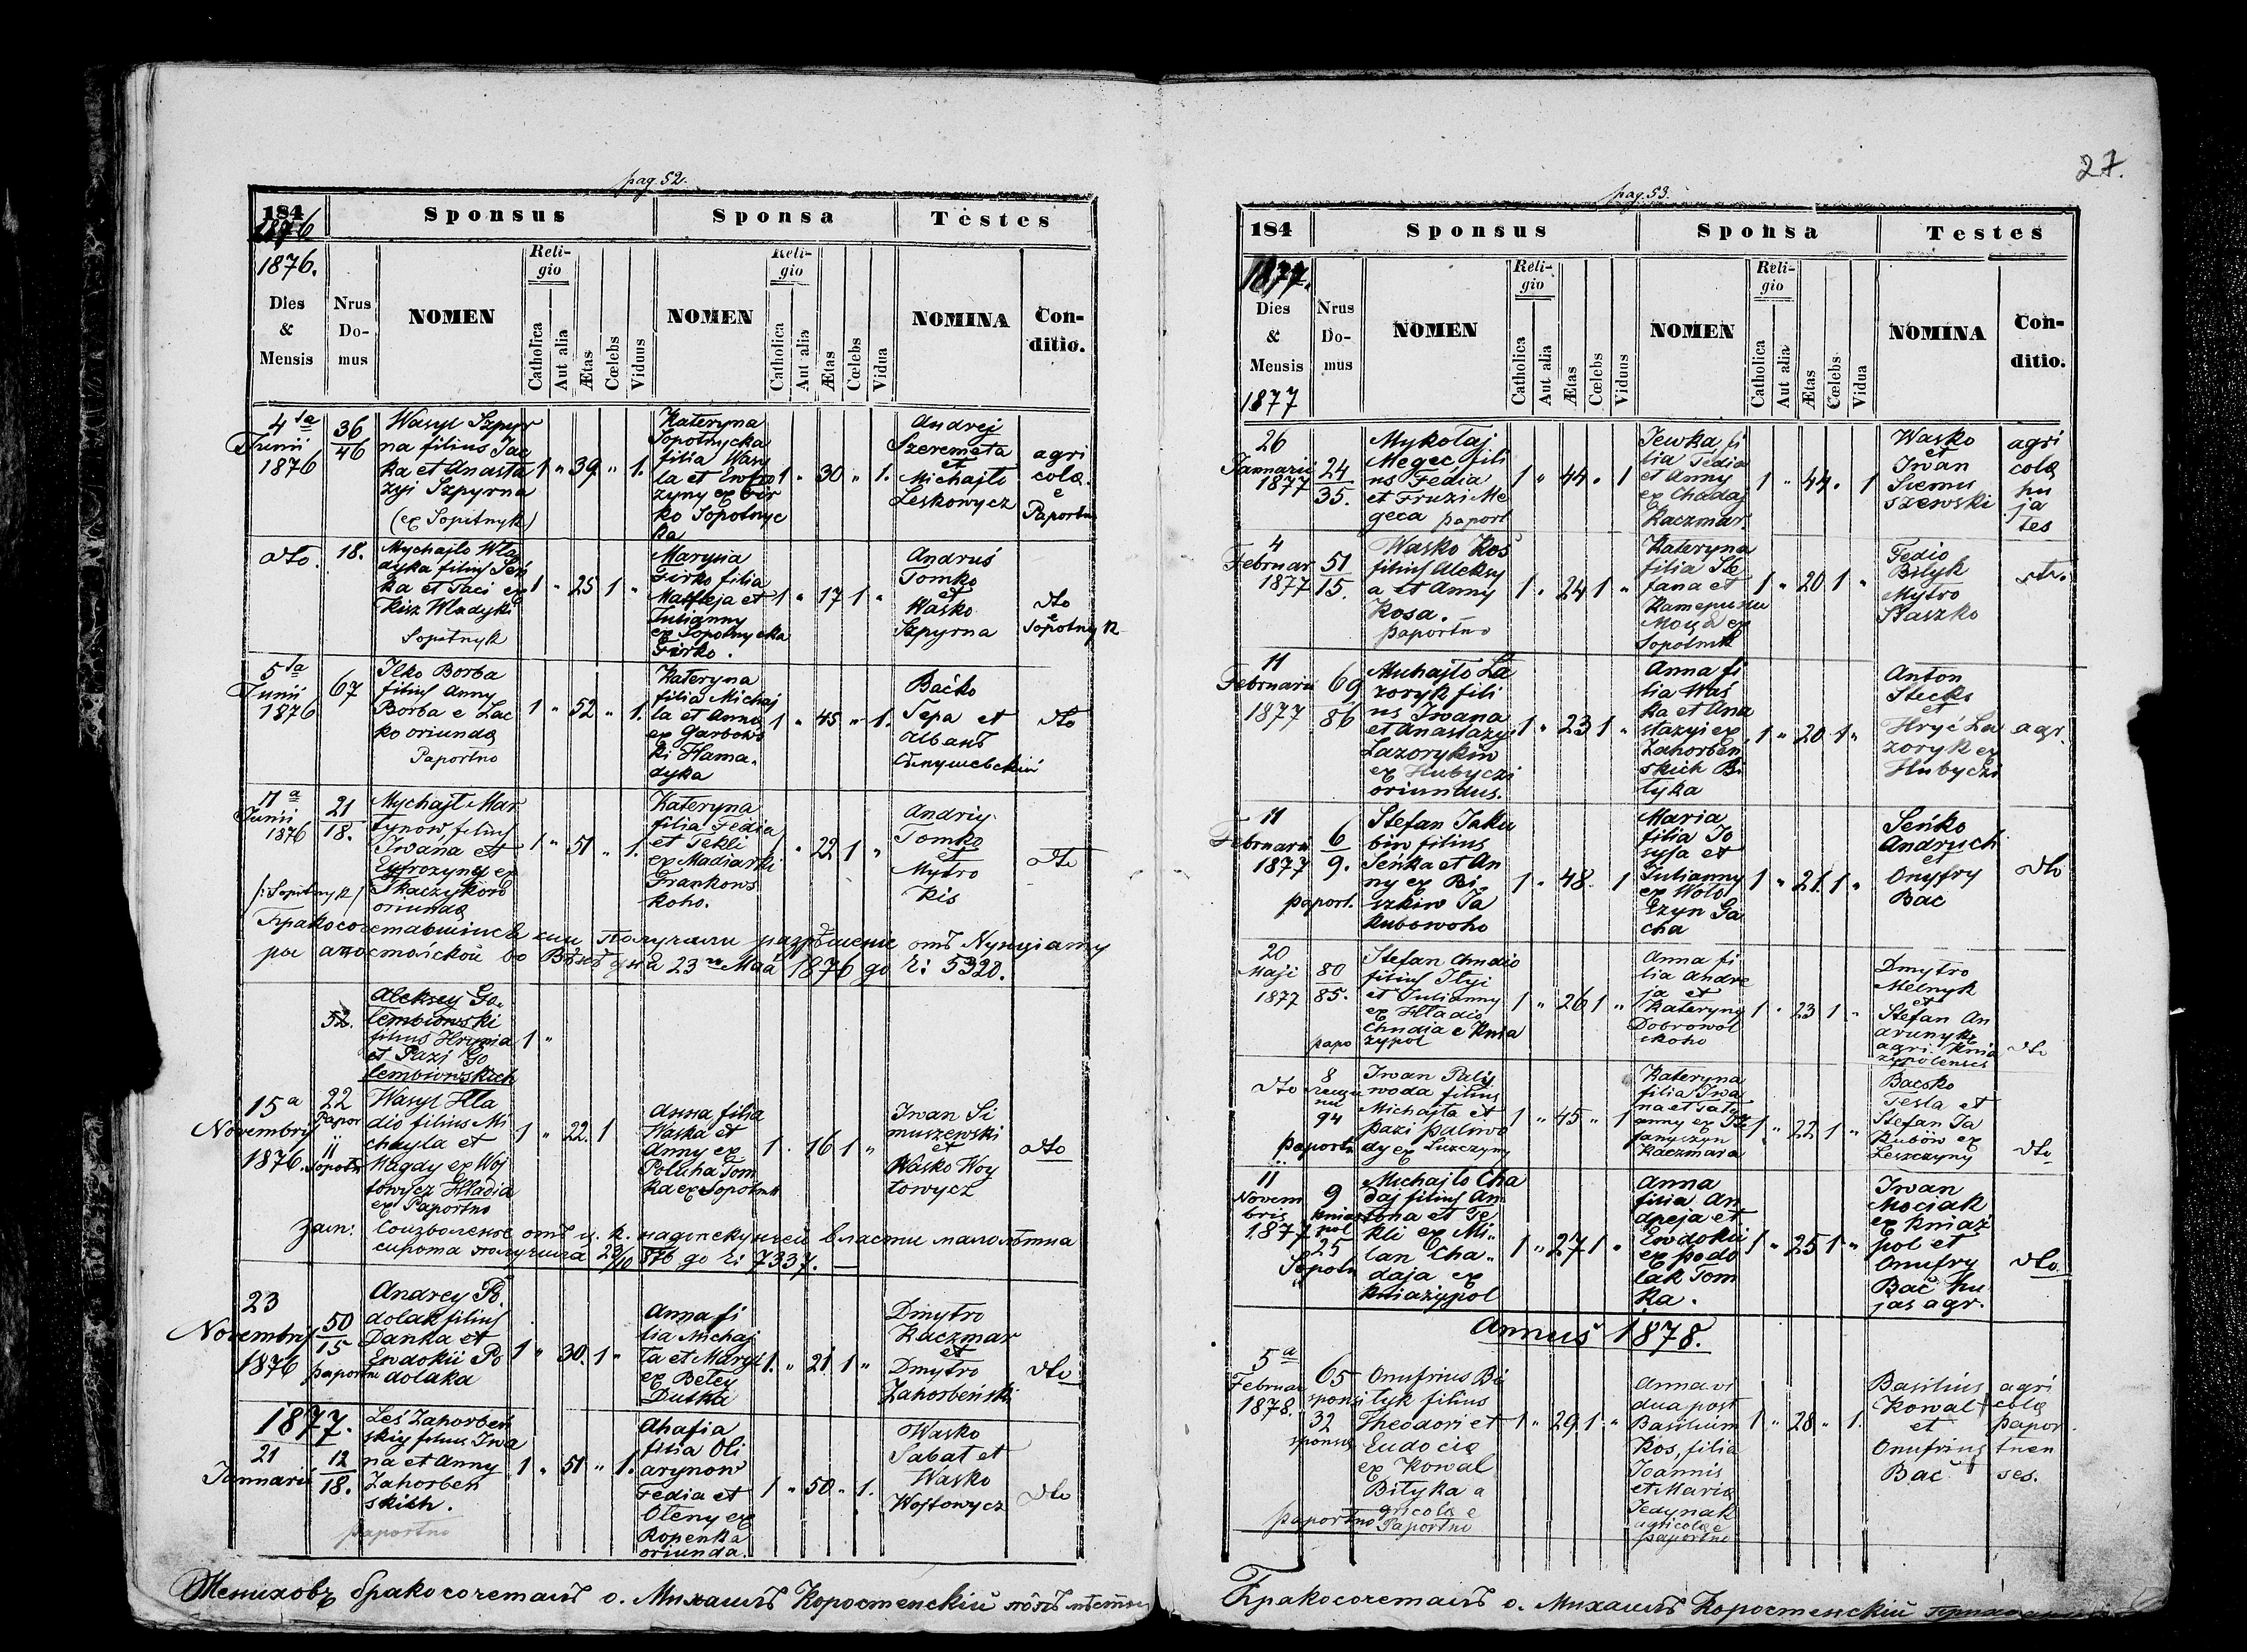 pag. 52.
184
1876
Sponsus
Sponsa
Testes
1876.
Dies
&
Mensis
Nrus
Do-
mus
NOMEN
Reli-
gio
Catholica
Aut alia
Ætas
Cœlebs
Viduus
NOMEN
Reli-
gio
Catholica
Aut alia
Ætas
Cœlebs
Vidua
NOMINA
Con-
ditio.
4ta
Junii
1876
36
46
Wasyl Szpyr
na filius Jac
ka et Anasta
zyi Szpyrna
(ex Sopitnyk)
1 " 39 " 1.
Kateryna
Sopotnycka
filia Wasy
la et Ewfro
zyny ex Fir
ko Sopotnyc
ka
1 " 30 " 1.
Andrej
Szeremeta
et
Michajło
Leskowycz
agri
colæ
e
Paportno
dto.
18.
Mychajlo Wła
dyka filius Seń
ka et Paci ex
Kisz Władyki
Sopitnyk
1 " 25 1 "
Marysia
Firko filia
Mattheja et
Julianny
ex Sopotnycka
Firko.
1 " 17 1 "
Andruś
Tomko
et
Waśko
Szpyrna
dto
e
Sopotnyk
5ta
Junii
1876
67
Ilko Borba
filius Anny
Borba e Lac
ko oriundæ
Paportno
1 " 52 " 1.
Kateryna
filia Michaj
la et Anna
ex Garbows
ki Hama.
dyka
1 " 45 " 1.
Baćko
Tepa et
Албанъ
Сѣмушевскій
dto
11a
Junii
1876
21
18.
/: Sopitnyk /
Mychajl Mar
tynow, filius
Iwana et
Eufrozynæ ex
Tkaczyków
oriundæ
1 " 51 " 1.
Kateryna
filia Fedia
et Tekli
ex Madiarski
Frankows
koho.
1 " 22 1 "
Andriy
Tomko
et
Mytro
Kis
dto
Бракосочетавшіися сіи получили разрѣшеніе отъ Нунціату
ры апостольской во Вѣднѣ дня 23го Мая 1876 до Ч: 5320.
52.
Aleksey Go.
lembiowski
filius Hrynia
et Pazi Go
lembiowskich
1 "
15a
Novembris
1876.
22
Papor
11
Sopotn
Wasyl Hła
dio filius Mi
chayla et
Magdy ex Woj
towycz Hładia
ex Paportno
1 " 22. 1
Anna filia
Waska et
Anny ex
Poluha Tom
ka ex Sopotnik
1 . 16 1 "
Iwan Si
muszewski
et
Waśko Woy
towycz
dto
Зам: Соизволеніе отъ ц. к. надопекунчей власти малолѣтна
сирота получила 29/10 876 до Ч: 7337. —
23
Novembris
1876
50
15
paportno
Andrey Po
dolak filius
Danka et
Ewdokii Po
dolaka
1 " 30. 1 "
Anna fi
lia Michaj
ła et Maryi
ex Beley
Dutka
1. " 21 1 "
Dmytro
Kaczmar
et
Dmytro
Zahorbeński
dto
1877.
21
Januarii
12
18.
Leś Zahorbeń
skiy filius Iwa
na et Anny
Zahorbeń
skich.
paportno
1 " 51 " 1.
Ahafia
filia Oli
arynow
Fedia et
Oleny ex
Ropenka
oriunda.
1 " 50 " 1.
Wasko
Sabat et
Wasko
Wojtowycz
dto
Бракосочеталъ о. Михаилъ Коростенскій
27.
pag. 53.
184
Sponsus
Sponsa
Testes
1877.
Dies
&
Mensis
1877
Nrus
Do-
mus
NOMEN
Reli-
gio
Catholica
Aut alia
Ætas
Cœlebs
Viduus
NOMEN
Reli-
gio
Catholica
Aut alia
Ætas
Cœlebs
Vidua
NOMINA
Con-
ditio.
26
Januarii
1877
24
35.
Mykołaj
Megec fili
us Fedia
et Fruzi Me
geca paport
1 " 44 " 1
Jewka fi
lia Fedia
et Anny
ex Chadaj
Kaczmar
1 " 44. " 1
Wasko
et
Iwan
Siemu
szewski
agri
colæ
hu
ja
tes
4
Februar
1877
51
15.
Wasko Kos
filius Aleksy
a et Anny
Kosa.
paportno
1 " 24 1 "
Kateryna
filia Ste
fana et
Катерины
Moyad ex
Sopotnik
1 " 20 1 "
Fedio
Bilyk
Mytro
Staszko
dto.
11
Februarii
1877
69
86
Muhajło La
zoryk fili
us Iwana
et Anastazyi
Lazorykiw
ex Hubyczi
oriundus.
1 " 23 1 "
Anna fi
lia Waś
ka et Ana
stazyi ex
Zahorben
skich Bi
lyka
1 " 20 1 "
Anton
Stecks
et
Hryć La
zoryk ex
Hubyczi
agr.
11
Februarii
1877
paport.
6
9.
Stefan Jaku
biw filius
Seńka et An
ny ex Bi
szkiw Ja
kubowoho
1 " 48. 1
Maria
filia Jo
syfa et
Julianny
ex Woło
szyn Ga
cha
1 " 21. 1 "
Seńko
Andruch
et
Onyfry
Bac
dto
20
Maji
1877
80
85.
papo
Stefan Chudio
filius Ilyi
et Julianny
ex Hładio
Chudia e Knia
zypol
1 " 26 1 "
Anna fi
lia Andre
ja et
Kateryny
Dobrowol
skoho
1 " 23 1 "
Dmytro
Melnyk
et
Stefan An
drunyk
agri. Knia
zypolensis
dto
dto
8
94
paportn
Iwan Paliy
woda filius
Michajła et
pazi paliwo
dy ex Luzczyny
1 " 45 " 1
Kateryna
filia Iwa
na et Taty
anny ex Ste
fanyszyn
Kaczmara
1 " 22 1 "
Bacsko
Tesla et
Stefan Ja
kubów ex
Leszczyny
dto
11
Novem
bris
1877
9
kniaż
pol
25
Sopotn
Muchajlo Cha
daj filius An
tona et Te
kli ex Mi.
lan Cha.
daja ex
Kniażypol
1 " 27 1 "
Anna
filia An
dreja et
Ewdokii
ex podo
lak Tom
ka.
1 " 25 1 "
Iwan
Mociak
ex Kniaż
pol et
Onufry
Bać hu
jas agr.
dto
Annus 1878.
5a
Februar
1878.
65
sponsi
32
sponsus
Onufrius Bi
łyk filius
Theodori et
Eudociæ
ex Kowal
Biłyka a
gricolæ e
Paportno
paportno
1 " 29. 1 "
Anna vi
dua post
Basilium
Kos, filia
Joannis
et Maria
Jedynak
agricolæ e
paportno
1 " 28 " 1.
Basilius
Kowal
et
Onufrius
Bać
agri
colæ
papor
tnen
ses.
Бракосочеталъ о. Михаилъ Коростенскій